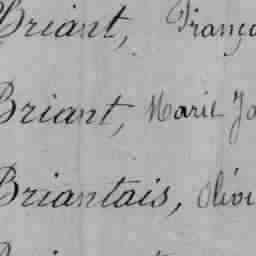 Briant, Franço
Briant, Marie Jo
Briantais, Olivi